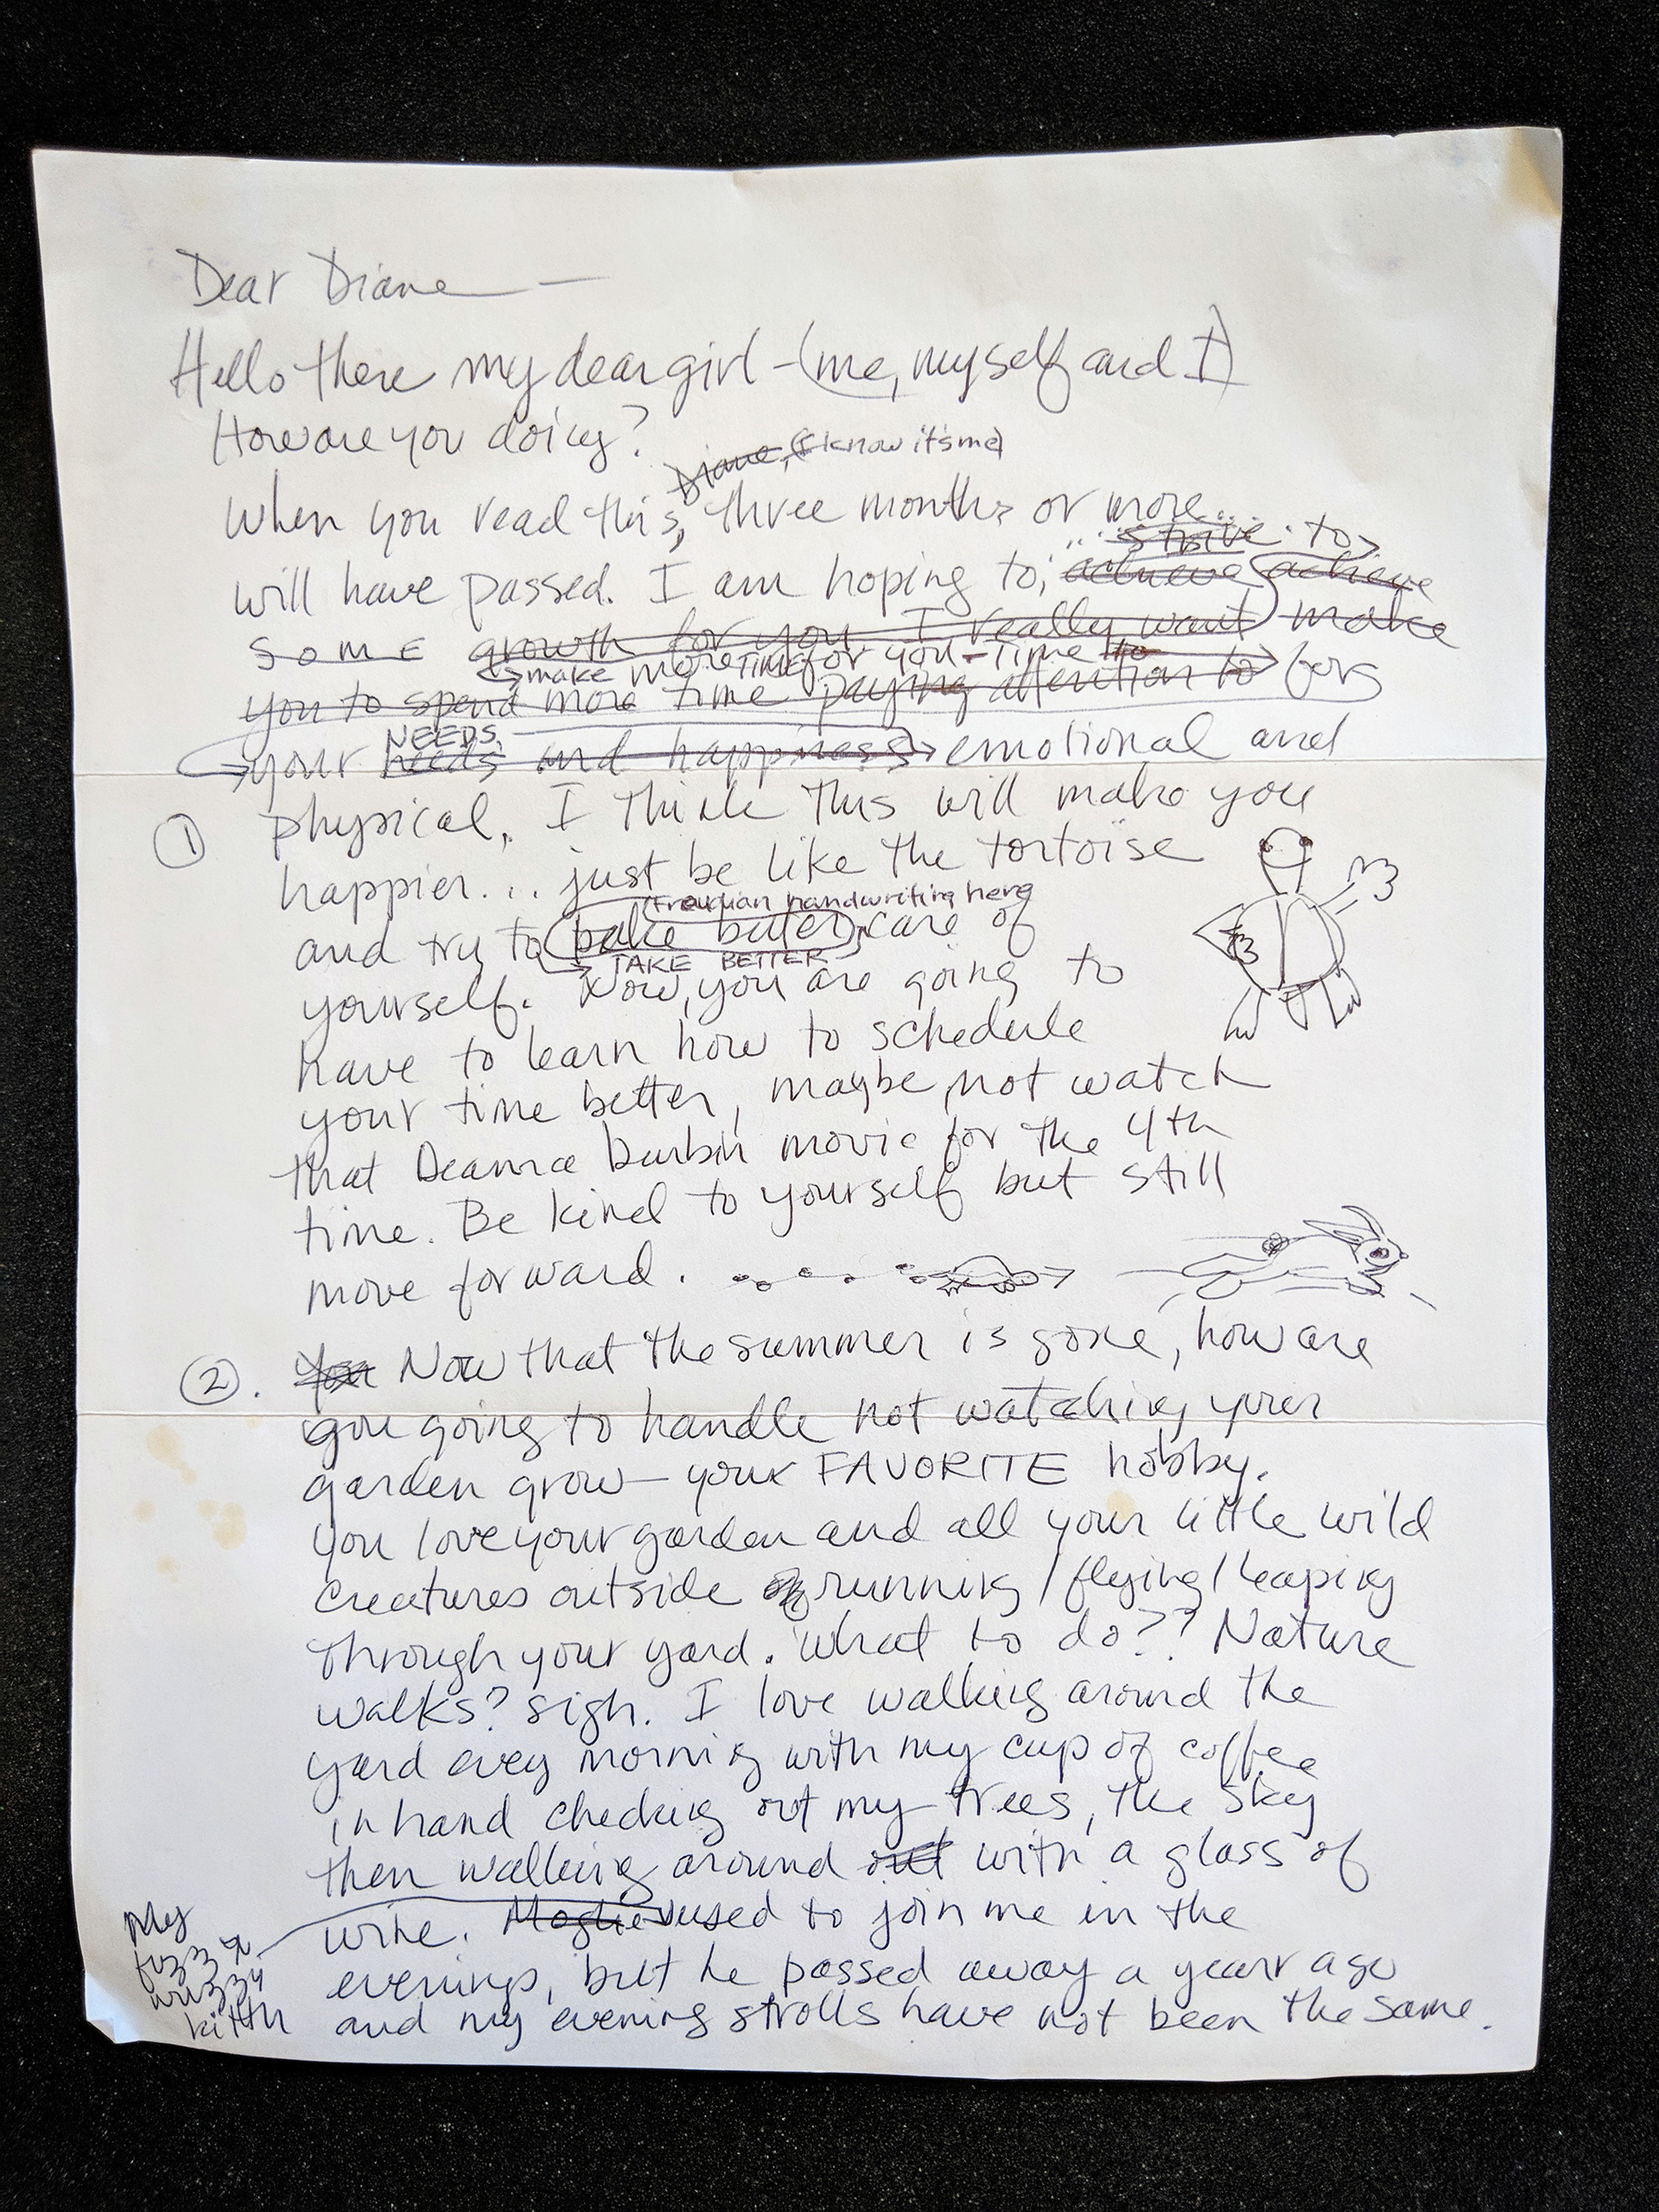 Dear Diane —
Hello there my dear girl - (me, myself and I)
How are you doing?
Diane, (I know it's me)
When you read this, three months or more...
... strive to
will have passed. I am hoping to; achieve achieve
some growth for you I really want make
make more time for you-time to
you to spend more time paying attention to for
NEEDS
your needs and happiness emotional and
① physical. I think this will make you
happier... just be like the tortoise
(Freudian handwriting here
and try to care of
TAKE BETTER
yourself. Now, you are going to
have to learn how to schedule
your time better, maybe not watch
that Deanna Durbin movie for the 4th
time. Be kind to yourself but still
move forward.
②. You Now that the summer is gone, how are
you going to handle not watching your
garden grow — your FAVORITE hobby.
you love your garden and all your little wild
creatures outside running / flying / leaping
through your yard. What to do?? Nature
walks? sigh. I love walking around the
yard evey morning with my cup of coffee
in hand checking out my trees, the sky
then walking around out with a glass of
wine. used to join me in the
My
fuzzy
wuzzy
kitty
evenings, but he passed away a year ago
and my evening strolls have not been the same.